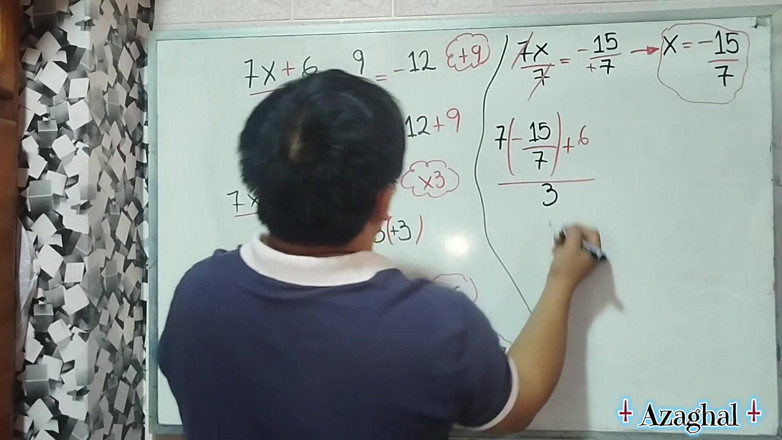 7x + 6 9 = -12 +9
12 + 9
7x x3
(+3)
7x/7 = -15/+7 → x = -15/7
7(-15/7) + 6
3
Azaghal